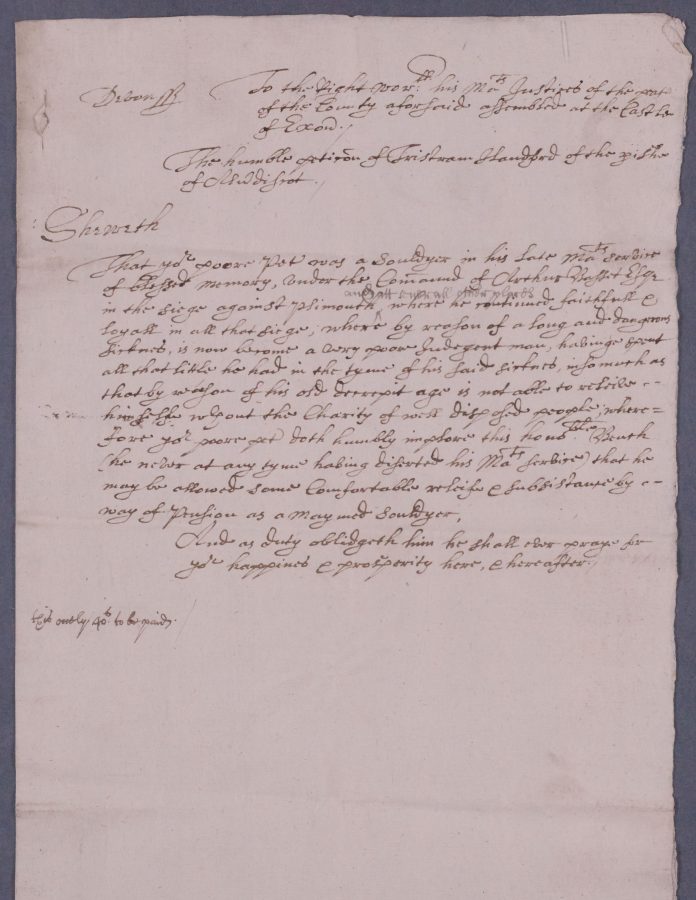 Devon ss
To the Right worll: his Mats Justices of the peace
of the County aforsaid assembled at the Castle
of Exon./
The humble peticon of Tristram Standford of the pishe
of
Sheweth
That yor poore Pet was a Souldyer in his late Mats Service
of blessed memory, under the Command of Arthur Basset Esqr
and att severall other places
in the siege against Plimouth, where he continued faithfull &
loyall in all that siege, where by reason of a long and dangerous
sicknes, is now become a very poore Indegent man, havinge spent
all that little he had in the tyme of his said sicknes, insomuch as
that by reason of his old decrepit age is not able to releive --
himselfe wthout the Charity of well disposed people, where=
fore yor poore pet doth humbly implore this honoble: Bench
(he never at any tyme having diserted his Mats service) that he
may be allowed some Comfortable releife & subsistance by --
way of Pension as a Maymed Souldyer,
And as duty oblidgeth him he shall ever praye for
yor happines & prosperity here, & hereafter./
only 40s to be paid./